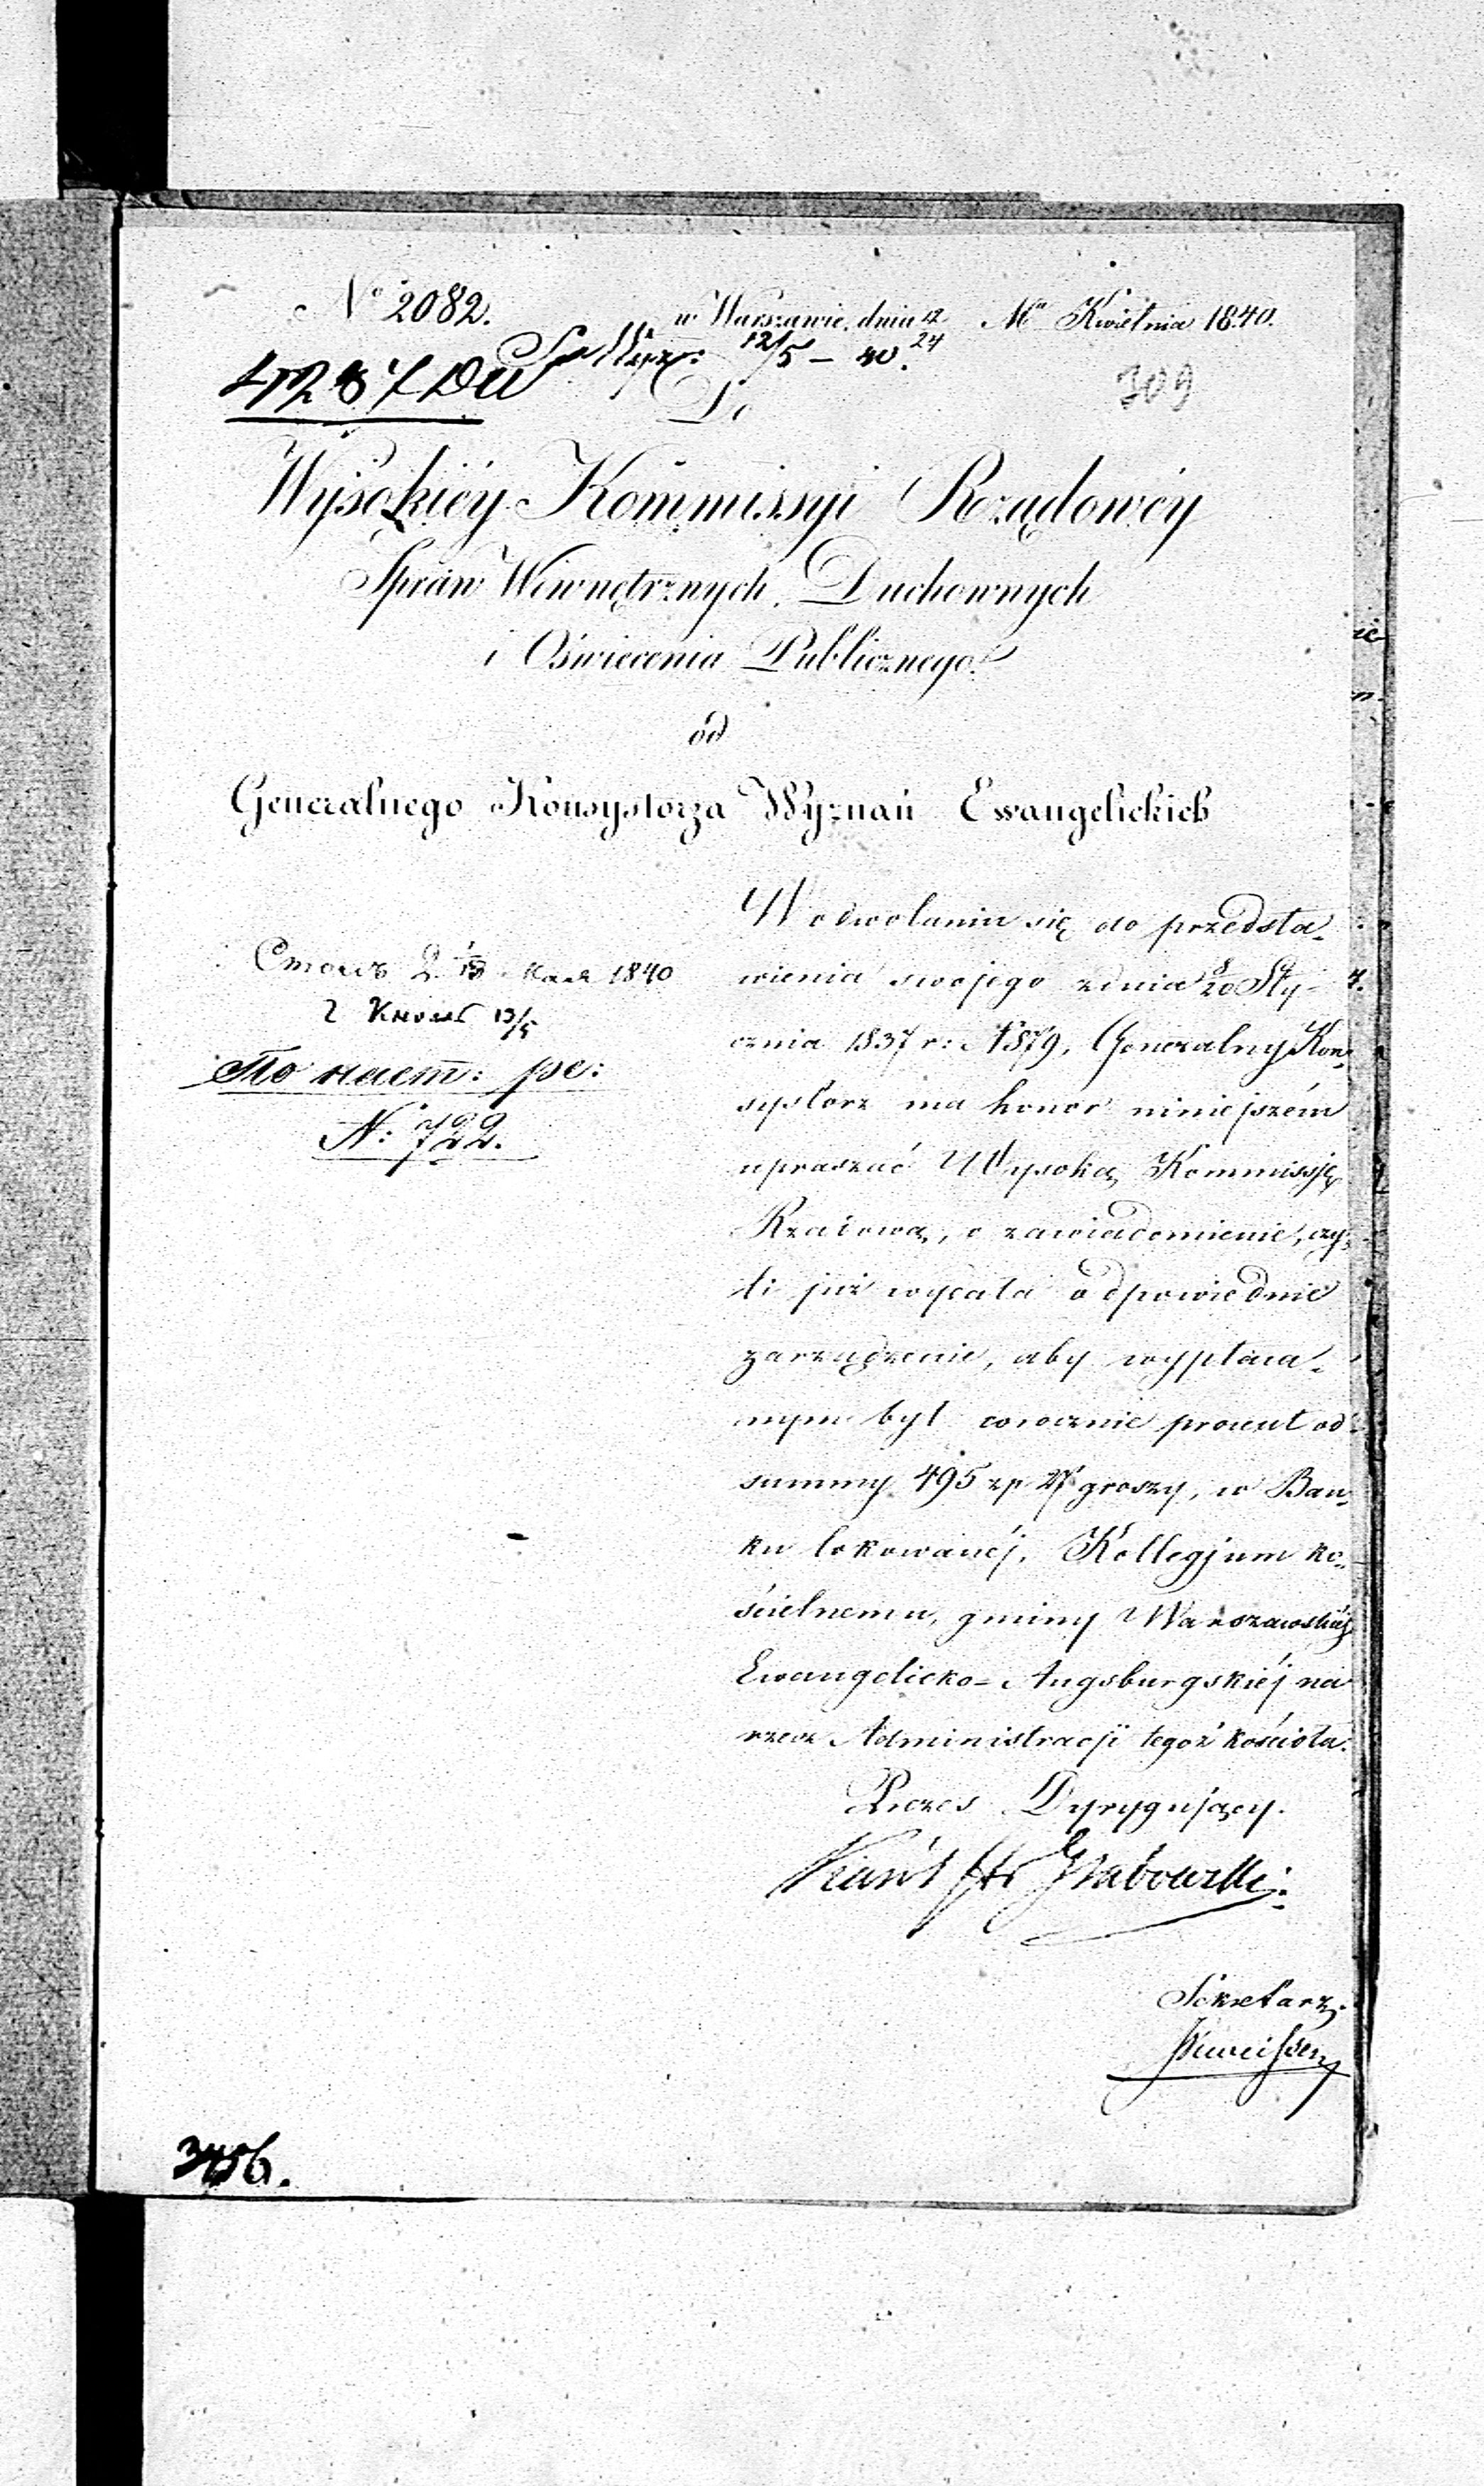 No 2082.
w Warszawie, dnia 12/24 Mca Kwietnia 1840.
12/5 – 40.
309
Do
Wysokiéy Kommissyi Rządowéy
Spraw Wewnętrznych, Duchownych
i Oświecenia Publicznego.
od
Generalnego Konsystorza Wyznań Ewangelickich
W odwołaniu się do przedsta-
wienia swojego z dnia 8/20 Sty-
cznia 1837 r: N 879, Generalny Kon-
systorz ma honor niniejszém
upraszać Wysoką Kommissję
Rządową, o zawiadomienie, czy-
li już wydała odpowiednie
zarządzenie, aby wypłaca-
nym był corocznie procent od
summy 495 zp 27 groszy, w Ban-
ku lokowanéj, Kollegjum ko-
ścielnemu, gminy Warszawskiéj
Ewangelicko-Augsburgskiéj na
rzecz Administracji tegoż kościoła.
Prezes Dyrygujący.
Grabowski.
Sekretarz.
Столъ 2 1840
13/5
По наст: ре:
N: 722.
3456.